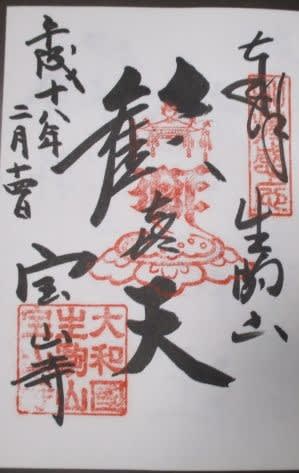 奉拝
生駒山
歓喜天
宝山寺
平成十八年
二月十四日
大和國
生駒山